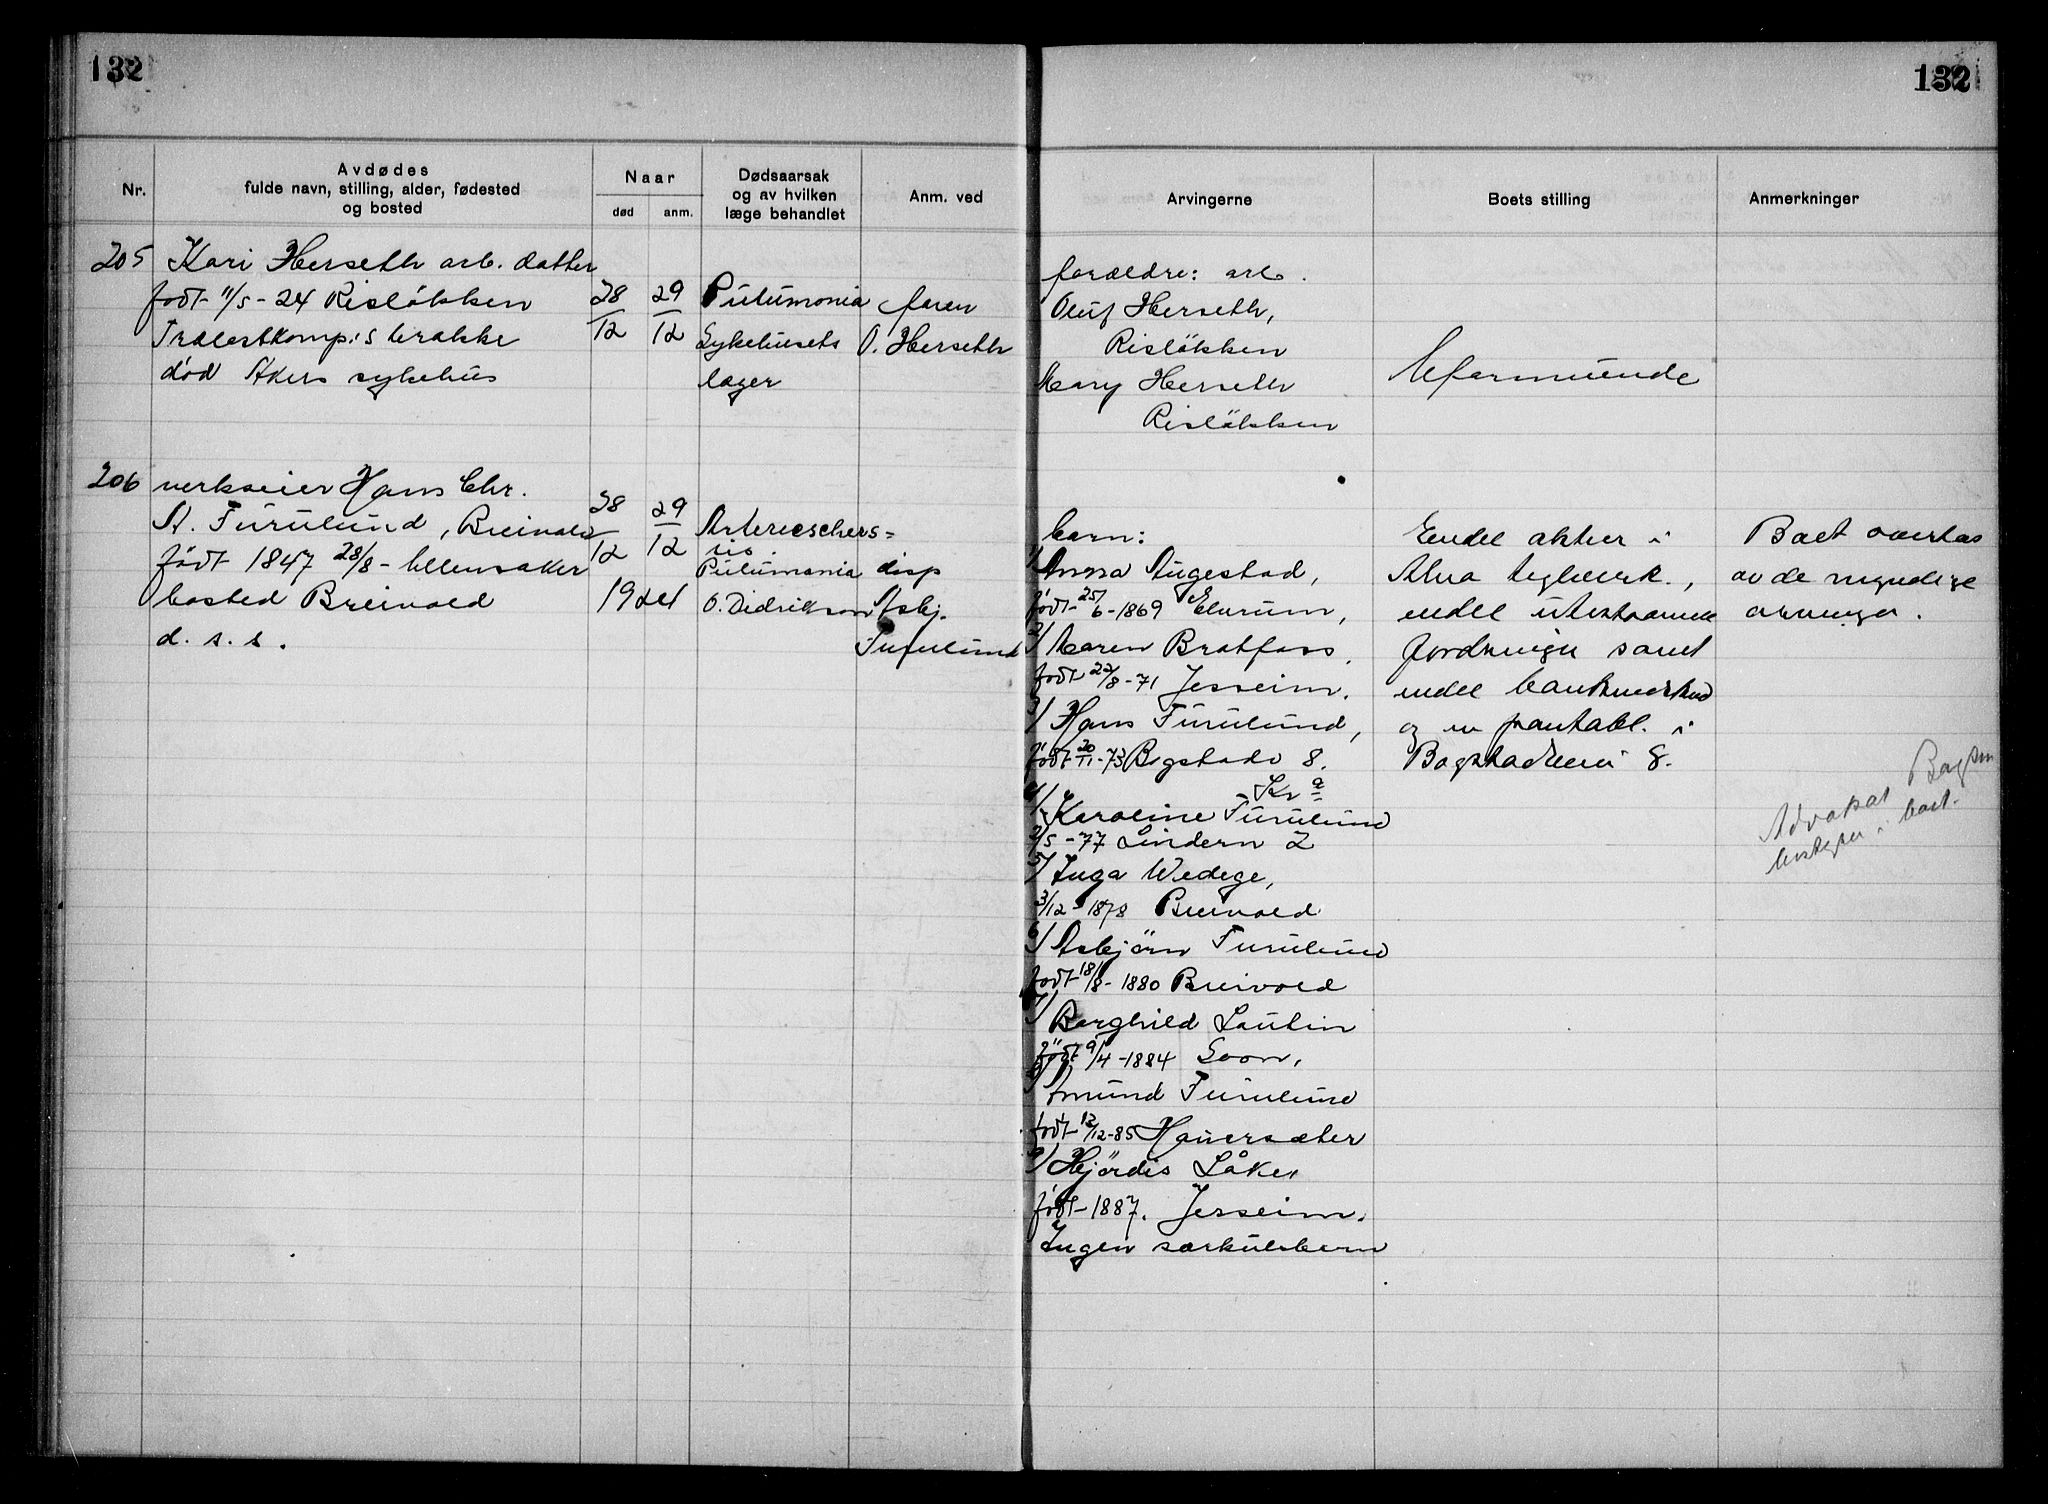 132
132
Nr.
Avdødes
fulde navn, stilling, alder, fødested
og bosted
Naar
død
anm.
Dødsaarsak
og av hvilken
læge behandlet
Anm. ved
Arvingerne
Boets stilling
Anmerkninger
205
Kari Herseth arb. datter
født 11/5-24 Risløkken
død Akers sykehus
28/12
29/12
Pulumonia
Sykehusets
læger
faren
O. Herseth
forældre: arb.
Oluf Herseth,
Risløkken
Mary Herseth
Risløkken
Uformuende
206
verkseier Hans Chr.
A. Furulund, Breivold
født 1847 28/8 - Ullensaker
bosted Breivold
d. s. s.
28/12
29/12
1924
Pulumonia
O. Didriksen
disp
Asbj.
Furulund
barn:
1/ Anna Augestad,
født 25/6-1869 Elvrum,
2/ Maren Bratfoss,
født 22/8-71 Jesseim.
3/ Hans Furulund,
født 20/11-73 Bogstadv 8.
Kr a
4/ Karoline Furulund
2/5-77 Lindern 2
5/ Inga Wedege,
3/12-1878 Breivold
6/ Asbjörn Furulund
født 18/8-1880 Breivold
7/ Borghild Lautin
født 9/4-1884 Soon,
8/ Amund Furulund
født 12/12-85 Hauersæter
9/ Hjördis Låke,
født 1887. Jesseim.
Ingen særkulsbarn
Endel aktier i
Alna teglverk.,
endel utestaaende
fordringer samt
endel bankinnskud
og en pantobl. i
Bogstadveien 8.
Boet overtas
av de myndige
arvinger.
Advokat
boet.